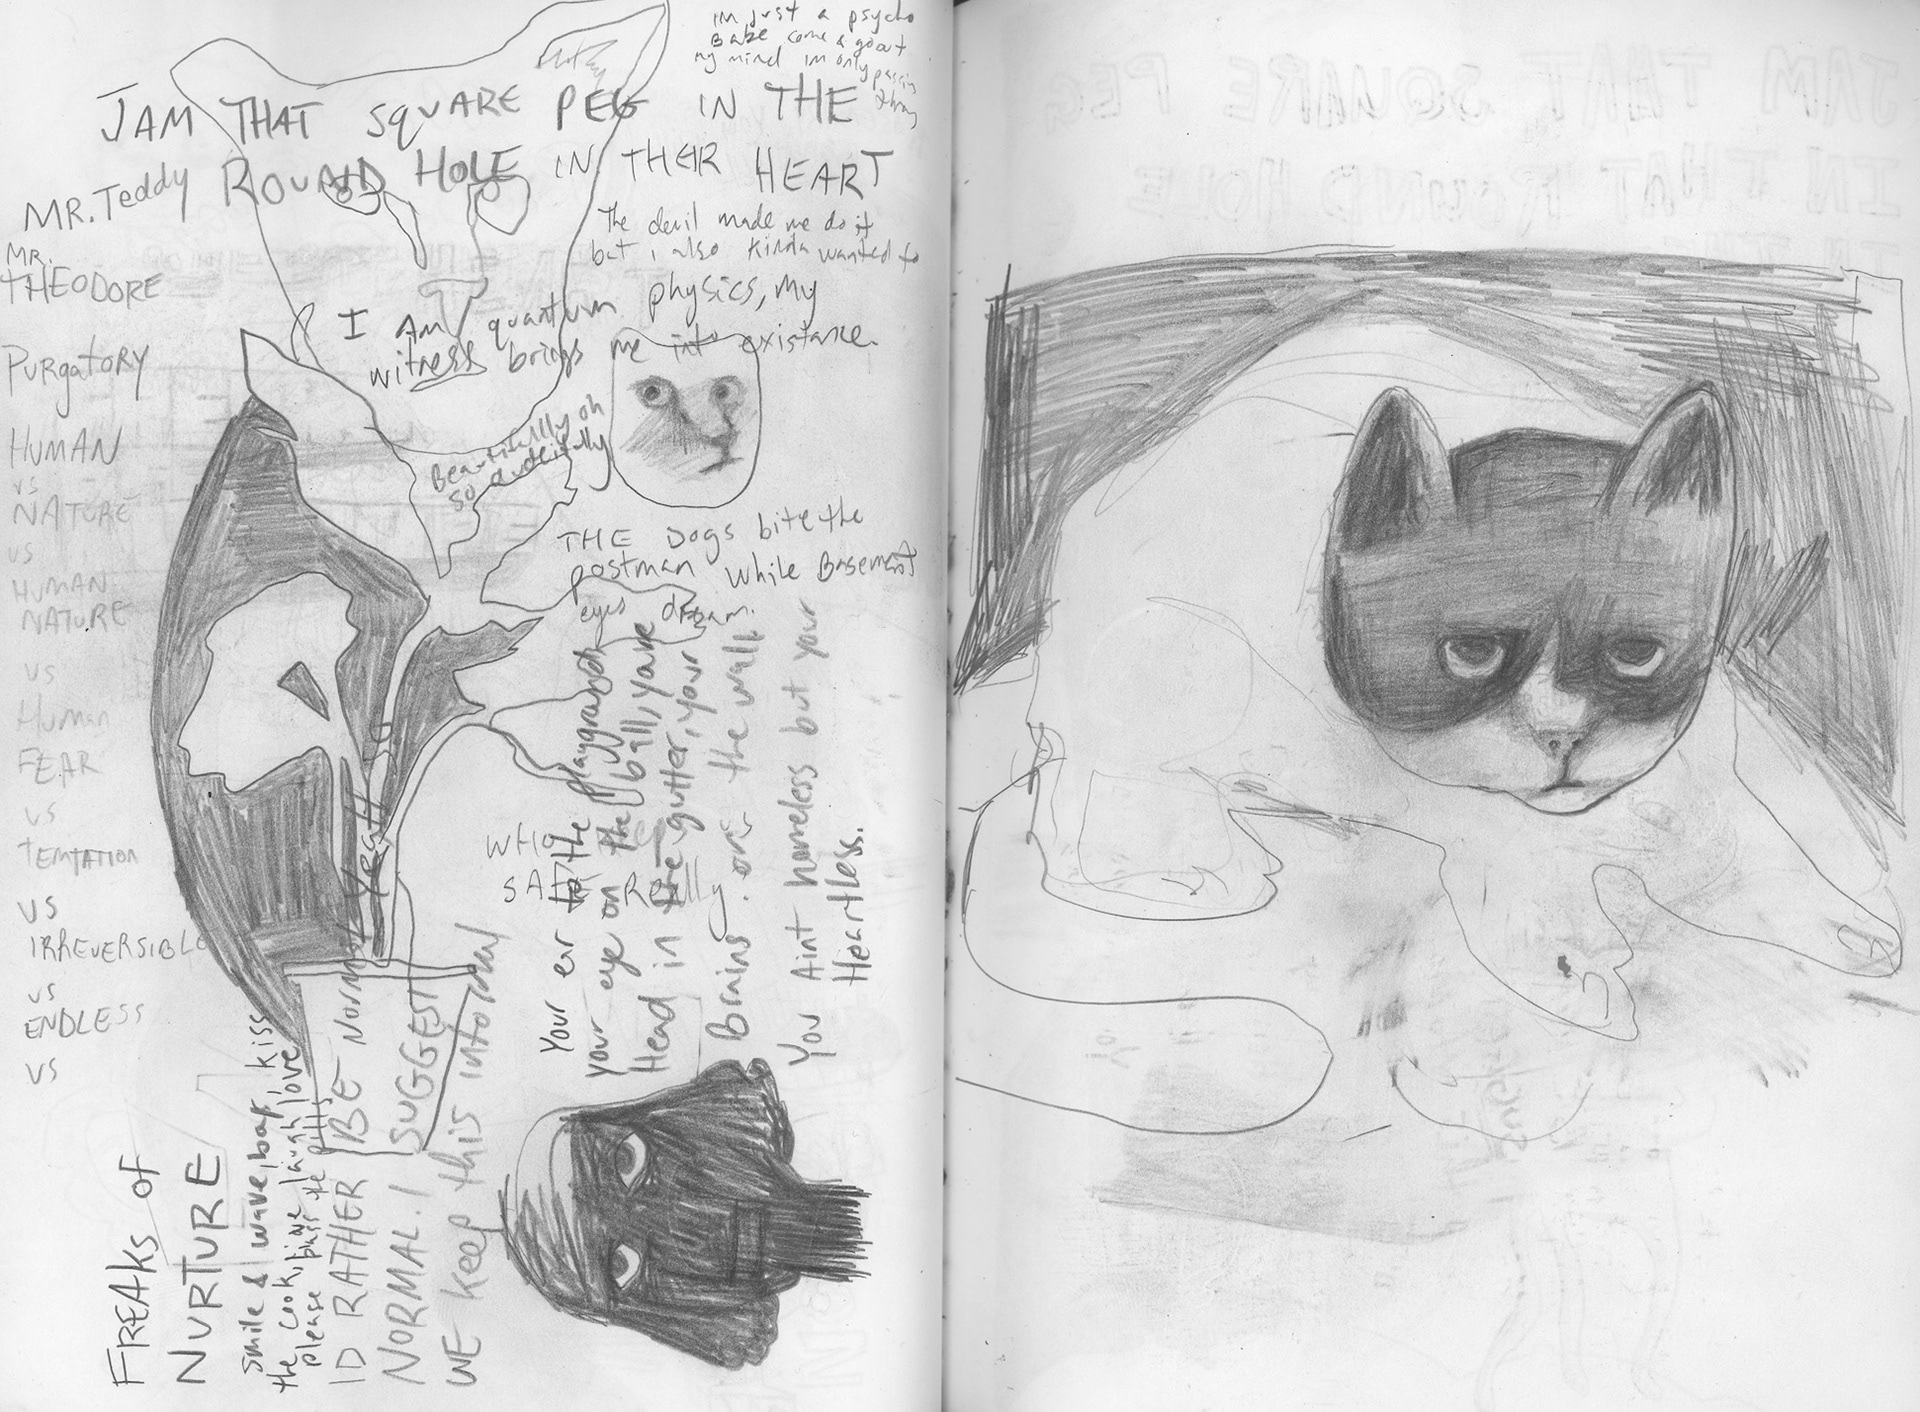 im just a psycho
Babe come & go out
my mind im only
passing
JAM THAT SQUARE PEG IN THE
ROUND HOLE IN THEIR HEART
MR. Teddy
MR.
THEODORE
The devil made me do it
but i also kinda wanted to
I AM quantum physics, my
witness brings me into existance.
Purgatory
HUMAN
vs
NATURE
vs
HUMAN
NATURE
vs
Human
FEAR
vs
TEMTATION
vs
IRREVERSIBLE
vs
ENDLESS
vs
Beautifully oh
so
THE DOGS bite the
postman while Basement
eyes dream.
WHO
SAFE REally
Your er to the playground
your eye on the ball, youre
Head in the gutter, your
Brains on the wall
You Aint homeless but your
Heartless.
FREAKS of
NURTURE
smile & wave, bag, kiss
the cook, live laugh love
please pass the pills
ID RATHER BE Normal Yeah
NORMAL. I SUGGEST
WE keep this informal
JAM THAT SQUARE PEG
IN THAT ROUND HOLE